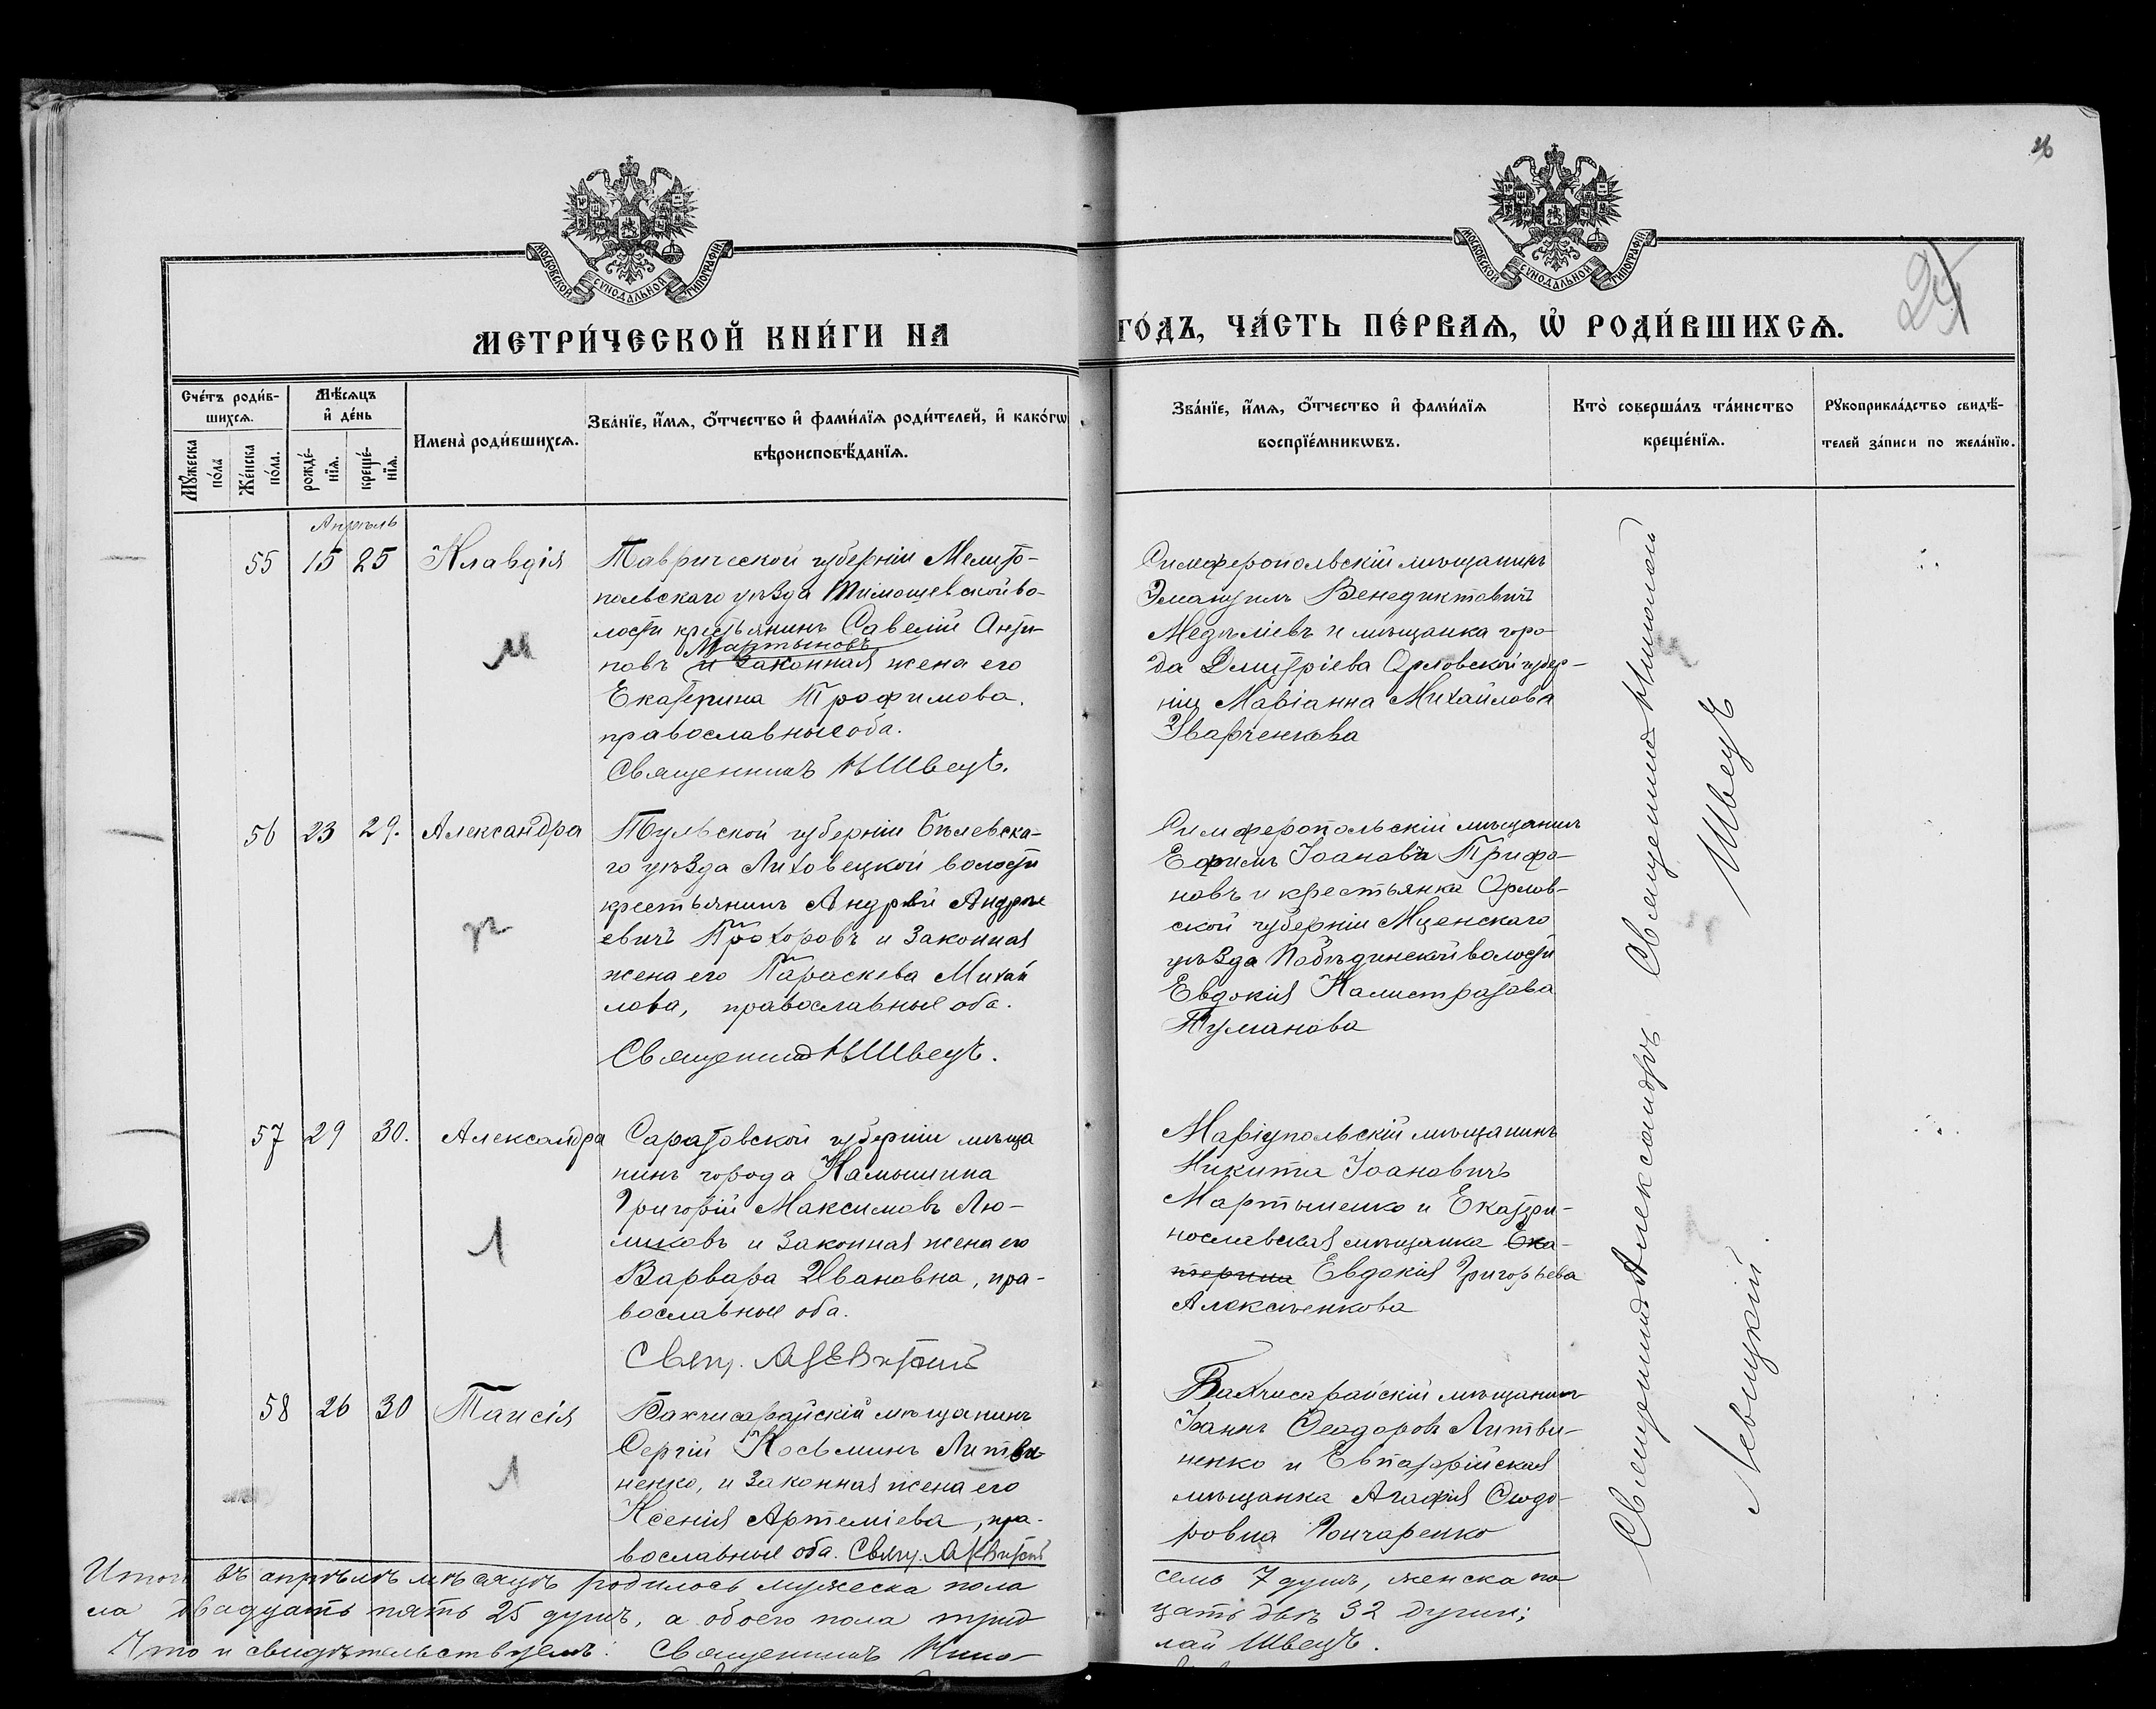 26
МОСКОВСКОЙ СѴНОДАЛЬНОЙ ТИПОГРАФІИ.
МОСКОВСКОЙ СѴНОДАЛЬНОЙ ТИПОГРАФІИ.
МЕТРИ́ЧЕСКОЙ КНИ́ГИ НА
ГО́ДЪ, ЧА́СТЬ ПЕ́РВАѦ, Ѡ҆ РОДИ́ВШИХСѦ.
Сче́тъ роди́в-
шихсѧ.
Мꙋ́жеска
по́ла
Же́нска
по́ла.
Мѣ́сѧцъ
и҆ де́нь
рожде́-
нїѧ.
креще́-
нїѧ.
Имена̀ роди́вшихсѧ.
Зва́нїе, и҆́мѧ, ѻ҆́тчество и҆ фами́лїѧ роди́телей, и҆ како́гѡ
вѣроисповѣ́данїѧ.
Зва́нїе, и҆́мѧ, ѻ҆́тчество и҆ фами́лїѧ
воспрїе́мникѡвъ.
Кто̀ соверша́лъ та́инство
креще́нїѧ.
Рꙋкоприкла́дство свидѣ́-
телей за́писи по жела́нїю.
Апрѣль
55 15 25 Клавдія
Таврической губерніи Мелито-
польскаго уѣзда Тимошевской во-
лости крестьянинъ Савелій Анти-
Мартыновъ
повъ и законная жена его
Екатерина Трофимова.
православные оба.
Священникъ Н Швецъ.
Симферопольскій мѣщанинъ
Эмануилъ Венедиктовичъ
Медѣліевъ и мѣщанка горо-
да Дмитріева Орловской губер-
ніи Маріанна Михайлова
Уварченкова
56 23 29. Александра
Тульской губерніи Бѣлевска-
го уѣзда Лиховецкой волости
крестьянинъ Андрей Андре
евичъ Прохоровъ и законная
жена его Параскева Михай
лова, православные оба.
Священникъ Н Швецъ.
Симферопольскій мѣщанинъ
Ефимъ Іоановъ Трифо-
новъ и крестьянка Орлов-
ской губерніи Мценскаго
уѣзда Побѣдинской волости
Евдокія Калистратова
Туманова
57 29 30. Александра
Саратовской губерніи мѣща
нинъ города Камышина
Григорій Максимовъ Лю-
миковъ и законная жена его
Варвара Ивановна, пра-
вославные оба.
Свящ. А Левитскій
Маріупольскій мѣщанинъ
Никита Іоановичъ
Мартыненко и Екатери-
нославская мѣщанка Ека-
терина Евдокія Григорьева
Алексѣенкова
58 26 30 Таисія
Бахчисарайскій мѣщанинъ
Сергій Косьминъ Литви-
ненко, и законная жена его
Ксенія Артеміева, пра-
вославные оба. Свящ. А Левитскій
Бахчисарайскій мѣщанинъ
Іоаннъ Ѳеодоровъ Литви-
ненко и Евпаторійская
мѣщанка Агафія Ѳеодо-
ровна Гончаренко
Священникъ Николай
Швецъ
Священникъ Александръ
Левицкій.
Итого въ апрѣлѣ мѣсяцѣ родилось мужеска пола
семь 7 душъ, женска по
ла двадцать пять 25 душъ, а обоего пола трид
цать двѣ 32 души;
Что и свидѣтельствуемъ: Священникъ Нико-
лай Швецъ.